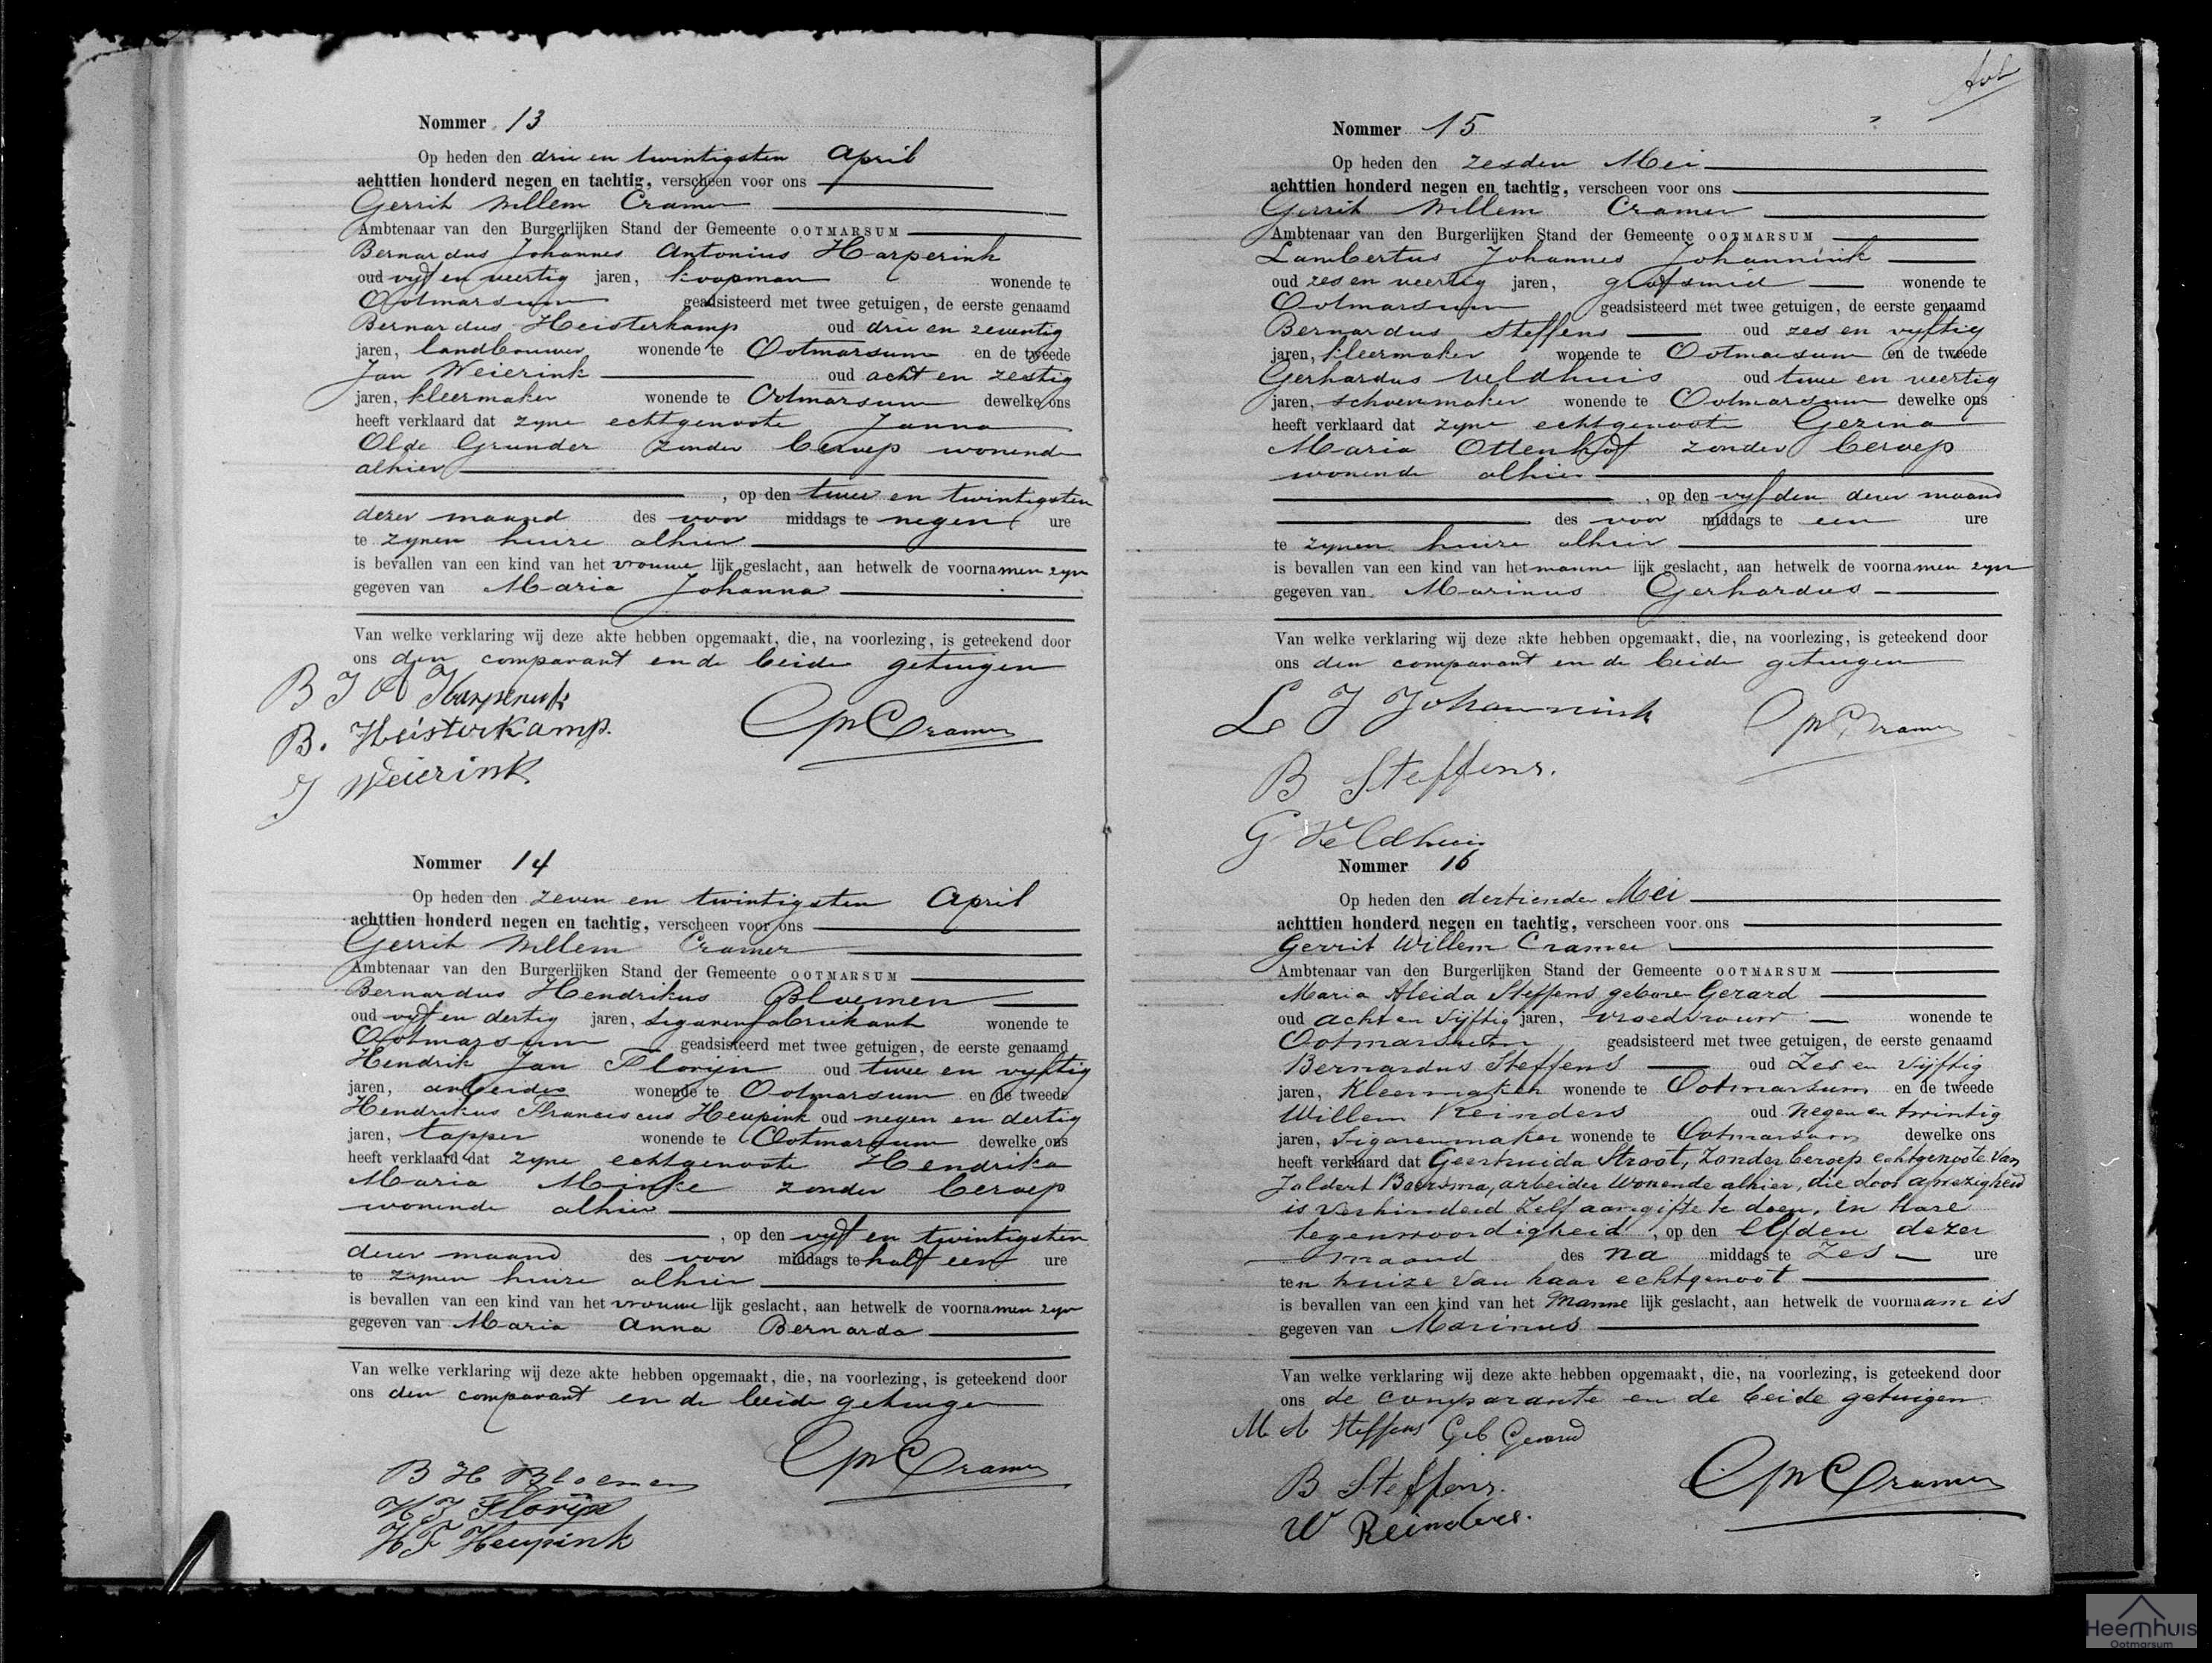 Nommer 13
Op heden den drie en twintigsten April
achttien honderd negen en tachtig, verscheen voor ons
Gerrit Willem Cramer
Ambtenaar van den Burgerlijken Stand der Gemeente OOTMARSUM
Bernardus Johannes Antonius Harperink
oud vyf en veertig jaren, koopman wonende te
Ootmarsum geadsisteerd met twee getuigen, de eerste genaamd
Bernardus Heisterkamp oud drie en zeventig
jaren, landbouwer wonende te Ootmarsum en de tweede
Jan Weierink oud acht en zestig
jaren, kleermaker wonende te Ootmarsum dewelke ons
heeft verklaard dat zyne echtgenoote Janna
Olde Grunder zonder beroep wonende
alhier
, op den twee en twintigsten
dezer maand des voor middags te negen ure
te zynen huize alhier
is bevallen van een kind van het vrouwe lijk geslacht, aan hetwelk de voornamen zyn
gegeven van Maria Johanna
Van welke verklaring wij deze akte hebben opgemaakt, die, na voorlezing, is geteekend door
ons den comparant en de beide getuigen
B J A Harperink
B. Heisterkamp.
GWCramer
J Weierink
Nommer 14
Op heden den zeven en twintigsten April
achttien honderd negen en tachtig, verscheen voor ons
Gerrit Willem Cramer
Ambtenaar van den Burgerlijken Stand der Gemeente OOTMARSUM
Bernardus Hendrikus Bloemen
oud vyf en dertig jaren, sigarenfabriekant wonende te
Ootmarsum geadsisteerd met twee getuigen, de eerste genaamd
Hendrik Jan Florijn oud twee en vyftig
jaren, arbeider wonende te Ootmarsum en de tweede
Hendrikus Franciscus Heupink oud negen en dertig
jaren, tapper wonende te Ootmarsum dewelke ons
heeft verklaard dat zyne echtgenoote Hendrika
Maria Minke zonder beroep
wonende alhier
, op den vyf en twintigsten
dezer maand des voor middags te half een ure
te zynen huize alhier
is bevallen van een kind van het vrouwe lijk geslacht, aan hetwelk de voornamen zyn
gegeven van Maria Anna Bernarda
Van welke verklaring wij deze akte hebben opgemaakt, die, na voorlezing, is geteekend door
ons den comparant en de beide getuigen
GWCramer
B H Bloemen
H J Florijn
H F Heupink
Nommer 15
Op heden den zesden Mei
achttien honderd negen en tachtig, verscheen voor ons
Gerrit Willem Cramer
Ambtenaar van den Burgerlijken Stand der Gemeente OOTMARSUM
Lambertus Johannes Johannink
oud zes en veertig jaren, grofsmid wonende te
Ootmarsum geadsisteerd met twee getuigen, de eerste genaamd
Bernardus Steffens oud zes en vyftig
jaren, kleermaker wonende te Ootmarsum en de tweede
Gerhardus Veldhuis oud twee en veertig
jaren, schoenmaker wonende te Ootmarsum dewelke ons
heeft verklaard dat zyne echtgenoote Gezina
Maria Ottenhof zonder beroep
wonende alhier
, op den vyfden dezer maand
des voor middags te een ure
te zynen huize alhier
is bevallen van een kind van het manne lijk geslacht, aan hetwelk de voornamen zyn
gegeven van Marinus Gerhardus
Van welke verklaring wij deze akte hebben opgemaakt, die, na voorlezing, is geteekend door
ons den comparant en de beide getuigen
L J Johannink
GWCramer
B Steffens.
G Veldhuis
Nommer 16
Op heden den dertienden Mei
achttien honderd negen en tachtig, verscheen voor ons
Gerrit Willem Cramer
Ambtenaar van den Burgerlijken Stand der Gemeente OOTMARSUM
Maria Aleida Steffens geboren Gerard
oud acht en vijftig jaren, vroedvrouw wonende te
Ootmarsum geadsisteerd met twee getuigen, de eerste genaamd
Bernardus Steffens oud zes en vijftig
jaren, Kleermaker wonende te Ootmarsum en de tweede
Willem Reinders oud negen en twintig
jaren, Sigarenmaker wonende te Ootmarsum dewelke ons
heeft verklaard dat Geertruida Stroot, zonder beroep echtgenoote van
Jaldert Boersma, arbeider wonende alhier, die door afwezigheid
is verhinderd zelf aangifte te doen, in hare
tegenwoordigheid, op den elfden dezer
maand des na middags te zes ure
ten huize van haar echtgenoot
is bevallen van een kind van het Manne lijk geslacht, aan hetwelk de voornaam is
gegeven van Marinus
Van welke verklaring wij deze akte hebben opgemaakt, die, na voorlezing, is geteekend door
ons de comparante en de beide getuigen
M A Steffens Geb Gerard
B Steffens.
GWCramer
W Reinders.
Heemhuis
Ootmarsum